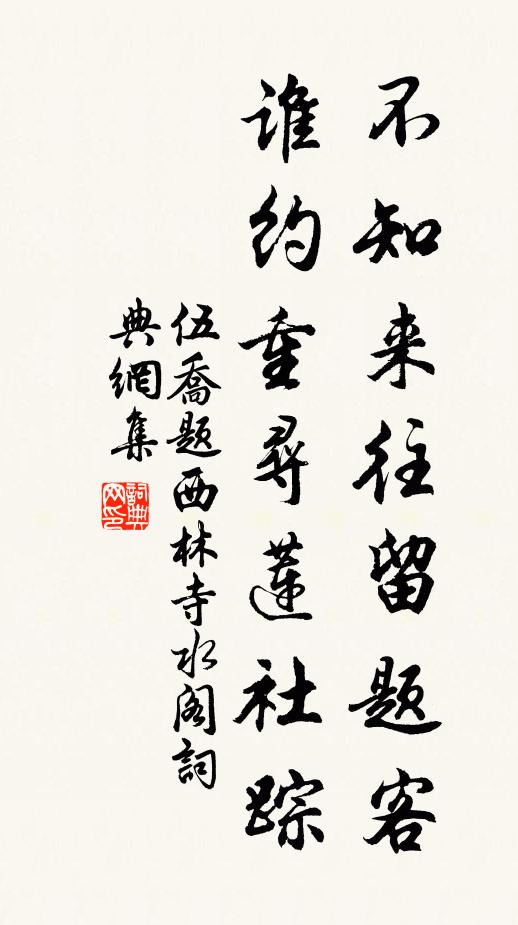 不知来往留题客
谁约重寻莲社踪
伍乔题西林寺水阁词
典网集
词典网印